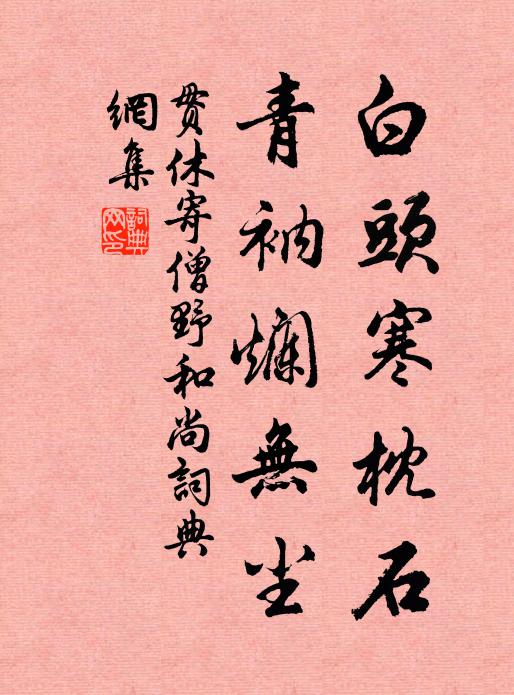 白頭寒枕石
青衲爛無尘
贯休寄僧野和尚詞典
網集
詞典網印